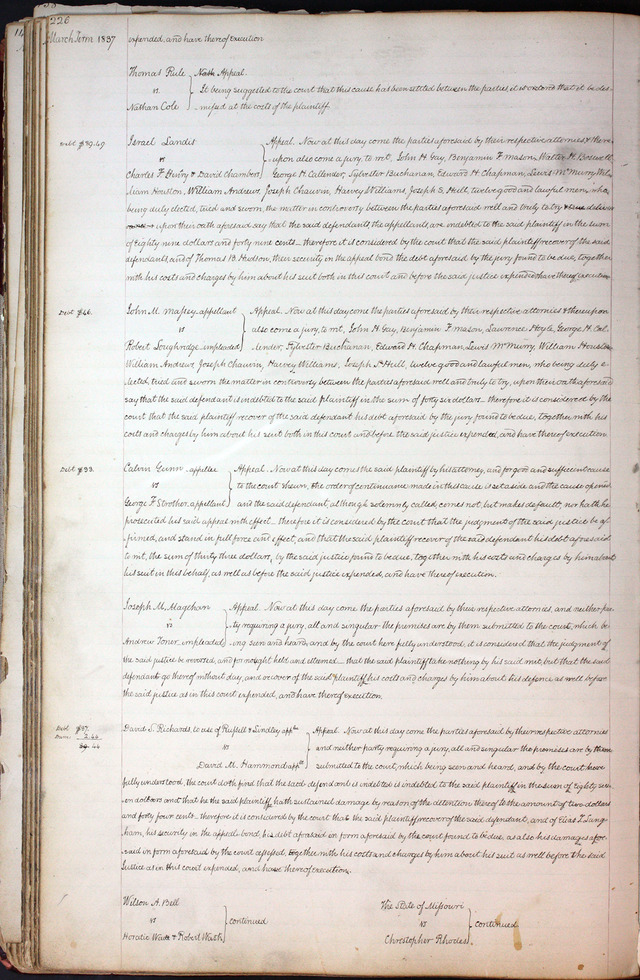 226
March Term 1837
expended, and have thereof execution
Thomas Rule
vs
Nathan Cole
Appeal.
It being suggested to the court that this cause has been settled between the parties, it is ordered that it be dis-
missed at the costs of the plaintiff.
Debt $89.49
Israel Landis
vs
Charles F. Henry & David Chambers
Appeal. Now at this day come the parties aforesaid by their respective attornies & there-
upon also come a jury, to wit, John H. Gay, Benjamin F. Mason, Walter H. Boswell,
George H. Callender, Sylvester Buchanan, Edward H. Chapman, Lewis McMurry, Wil-
liam Houston, William Andrew, Joseph Chauvin, Harvey Williams, Joseph S. Hill, twelve good and lawful men, who,
being duly elected, tried and sworn, the matter in controversy between the parties aforesaid well and truly to try
upon their oath aforesaid say that the said defendants, the appellants, are indebted to the said plaintiff in the sum
of Eighty nine dollars and forty nine cents – therefore it is considered by the court that the said plaintiff recover of the said
defendants, and of Thomas B. Hudson, their security in the appeal bond the debt aforesaid by the jury found to be due, together
with his costs and charges by him about his suit both in this court and before the said justice expended & have thereof execution
Debt $46.
John M. Massey, appellant
vs
Robert Loughridge, impleaded
Appeal. Now at this day come the parties aforesaid by their respective attornies & thereupon
also come a jury, to wit, John H. Gay, Benjamin F. Mason, Lawrence Hoyle, George H. Cal-
lender, Sylvester Buchanan, Edward H. Chapman, Lewis McMurry, William Houston,
William Andrew, Joseph Chauvin, Harvey Williams, Joseph S. Hill, twelve good and lawful men, who being duly e-
lected, tried and sworn the matter in controversy between the parties aforesaid well and truly to try, upon their oath aforesaid
say that the said defendant is indebted to the said plaintiff in the sum of forty six dollars – therefore it is considered by the
court that the said plaintiff recover of the said defendant his debt aforesaid by the jury found to be due, together with his
costs and charges by him about his suit both in this court and before the said justice expended, and have thereof execution
Debt $33.
Calvin Gunn, appellee
vs
George F. Strother, appellant
Appeal. Now at this day comes the said plaintiff by his attorney, and for good and sufficient cause
to the court shewn, the order of continuance made in this cause is set aside and the cause opened
and the said defendant, although solemnly called, comes not, but makes default; nor hath he
prosecuted his said appeal with effect – therefore it is considered by the court that the judgment of the said justice be af-
firmed, and stand in full force and effect, and that the said plaintiff recover of the said defendant his debt aforesaid
to wit, the sum of thirty three dollars, by the said justice found to be due, together with his costs and charges by him about
his suit in this behalf, as well as before the said justice expended, and have thereof execution.
Joseph M.
vs
Andrew Toner, impleaded
Appeal. Now at this day come the parties aforesaid by their respective attornies, and neither par-
ty requiring a jury, all and singular the premises are by them submitted to the court, which be-
ing seen and heard, and by the court here fully understood, it is considered that the judgment of
the said justice be reversed, and for nought held and esteemed – that the said plaintiff take nothing by his said writ, but that the said
defendant go thereof without day, and recover of the said plaintiff his costs and charges by him about his defence as well before
the said justice as in this court expended, and have thereof execution.
Debt $87.
Dam: 2.44
89.44
David S. Richards, to use of Russell & Lindley appts
vs
David M. Hammond appee
Appeal. Now at this day come the parties aforesaid by their respective attornies
and neither party requiring a jury, all and singular the premises are by them
submitted to the court, which being seen and heard, and by the court here
fully understood, the court doth find that the said defendant is indebted is indebted to the said plaintiff in the sum of eighty sev-
en dollars and that he the said plaintiff hath sustained damage by reason of the detention thereof to the amount of two dollars
and forty four cents – therefore it is considered by the court that the said plaintiff recover of the said defendant, and of Elias T. Lang-
ham, his security in the appeal bond, his debt aforesaid in form aforesaid by the court found to be due, as also his damages afore-
said in form aforesaid by the court assessed, together with his costs and charges by him about his suit as well before the said
Justice as in this court expended, and have thereof execution.
Wilson A. Bell
vs
Horatio Wash & Robert Wash
continued
The State of Missouri
vs
Christopher Rhodes
continued